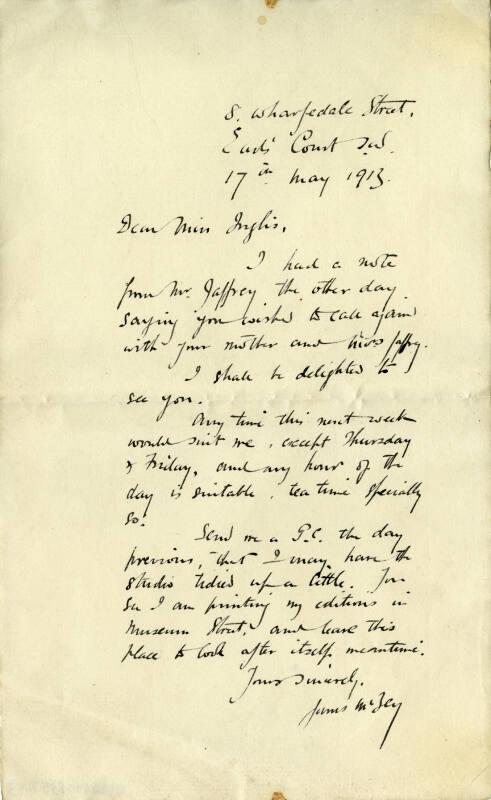 8. Wharfedale Street,
Earl's Court S.W.
17th May 1913.
Dear Miss Inglis,
I had a note
from Mr. Jaffrey the other day
saying you wished to call again
with your mother and Miss Jaffrey.
I shall be delighted to
see you.
Any time this next week
would suit me, except Thursday
& Friday, and any hour of the
day is suitable, tea time specially
so.
Send me a P.C. the day
previous, that I may have the
studio tidied up a little. You
see I am printing my editions in
Museum Street, and leave this
place to look after itself meantime.
Yours sincerely,
James McBey